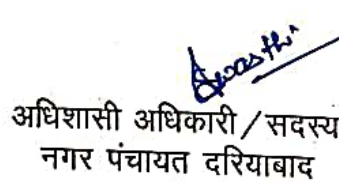 अधिशासी अधिकारी/सदस्य
नगर पंचायत दरियाबाद